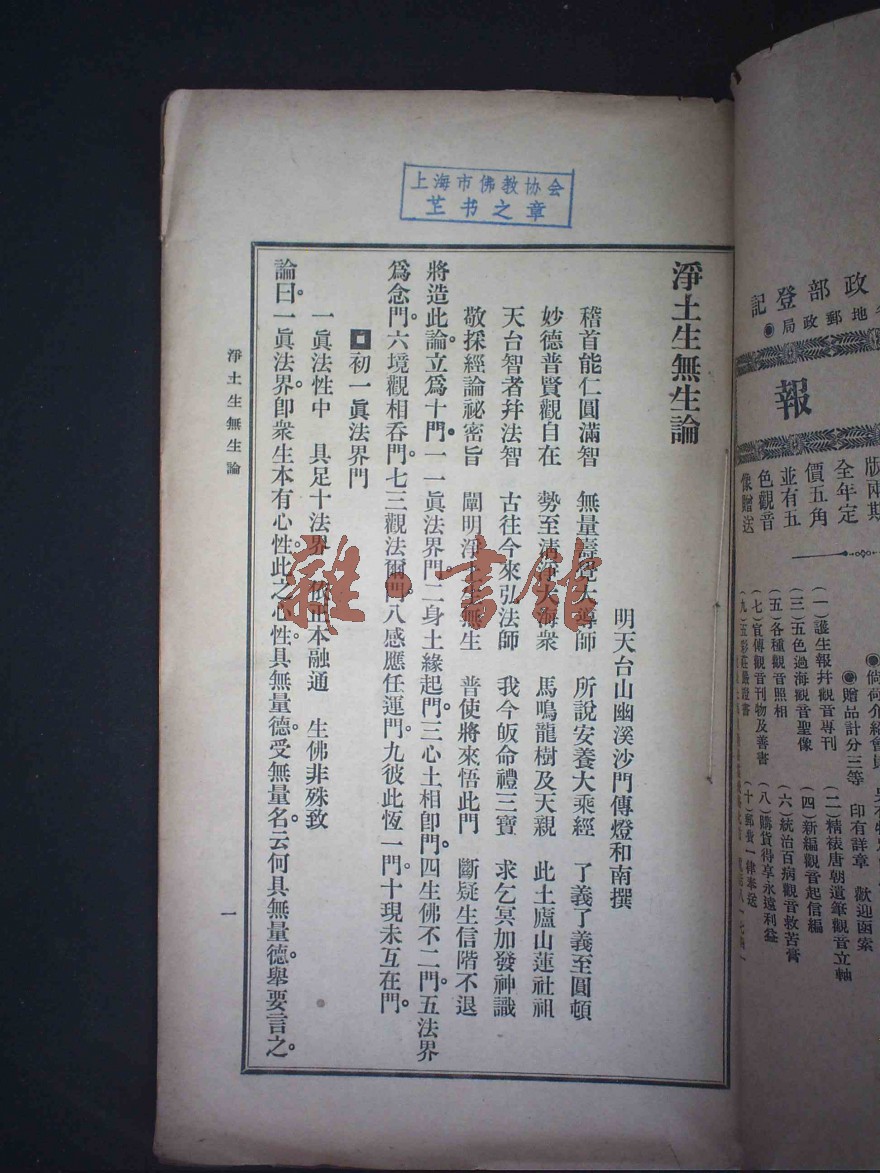 上海市佛教协会
芏书之章
淨土生無生論
明天台山幽溪沙門傳燈和南撰
稽首能仁圓滿智　無量壽覺大導師　所說安養大乘經　了義了義至圓頓
妙德普賢觀自在　勢至清淨大海衆　馬鳴龍樹及天親　此土廬山蓮社祖
天台智者幷法智　古往今來弘法師　我今皈命禮三寶　求乞冥加發神識
敬採經論祕密旨　闡明淨土生無生　普使將來悟此門　斷疑生信階不退
將造此論。立爲十門。一一眞法界門。二身土緣起門。三心土相卽門。四生佛不二門。五法界
爲念門。六境觀相吞門。七三觀法爾門。八感應任運門。九彼此恆一門。十現未互在門。
初一眞法界門
一眞法性中　具足十法界　依正本融通　生佛非殊致
論曰。一眞法界。卽衆生本有心性。此之心性。具無量德。受無量名。云何具無量德。舉要言之。
淨土生無生論
一
雜·書館
政部登記
地郵政局
報
版兩期
全年定
價五角
並有五
色觀音
像贈送
◉贈品計分三等　印有詳章　歡迎函索
（一）護生報幷觀音專刊　（二）精裱唐朝遺筆觀音立軸
（三）五色過海觀音聖像　（四）新編觀音起信編
（五）各種觀音照相　（六）統治百病觀音救苦膏
（七）宣傳觀音刊物及善書　（八）購貨得享永遠利益
（九）五彩莊嚴證書　（十）郵費一律奉送